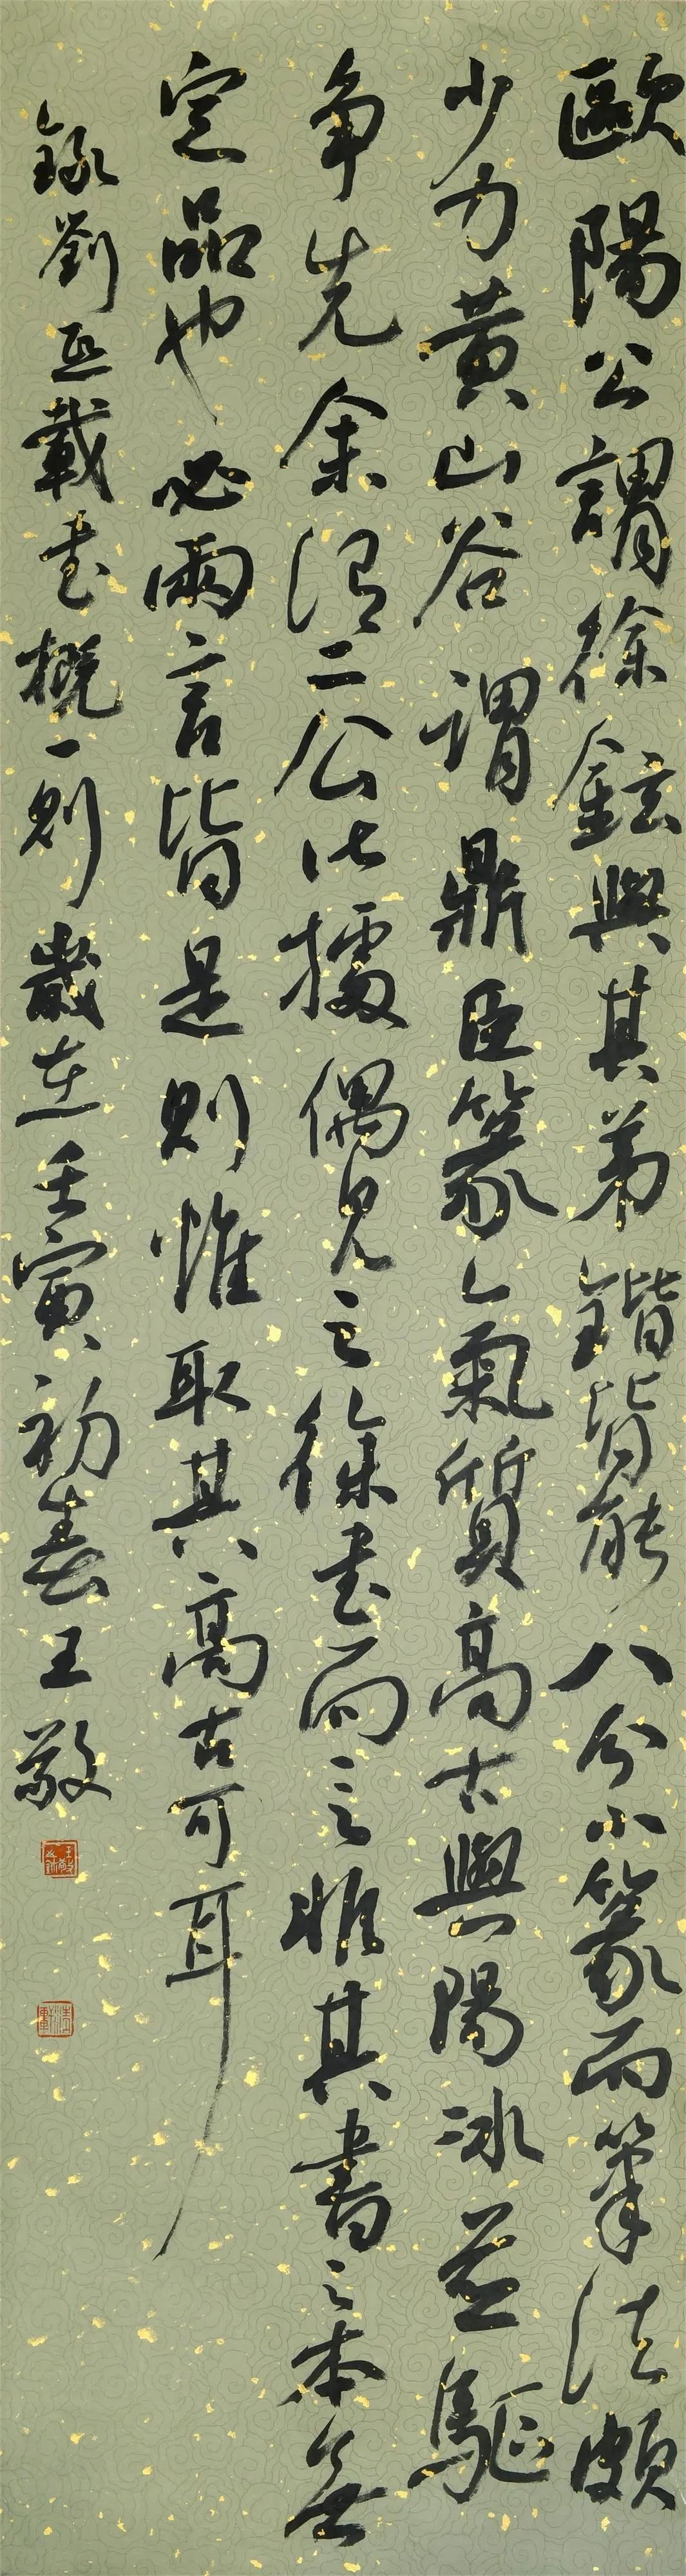 歐陽公謂徐鉉與其弟鍇皆能八分小篆而筆法頗
少力黃山谷謂鼎臣篆之氣質高古與陽冰並驅
爭先余謂二公皆據偶見之徐書而言非其書之本無
定品也必兩言皆是則惟取其高古可耳
錄劉熙載書概一則歲在壬寅初春王敬